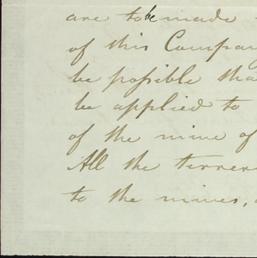 are to be made
of this Compan
be possible tha
be applied to
of the mine of
All the terren
to the mines,